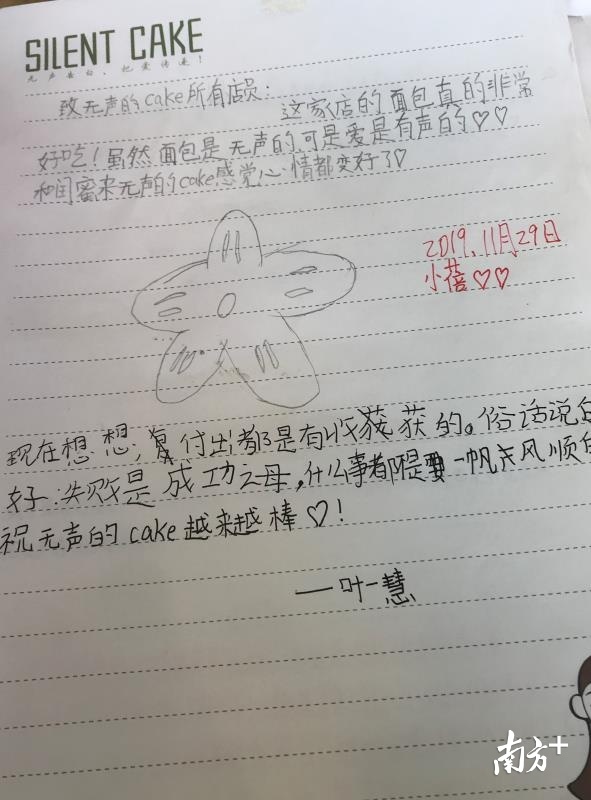 SILENT CAKE
无声告白,把爱传递!
致无声的cake所有店员:
这家店的面包真的非常
好吃!虽然面包是无声的,可是爱是有声的♡♡
和闺蜜来无声的cake感觉心情都变好了♡
2019.11月29日
小蓓♡♡
现在想想,付出都是有收获的。俗话说的
好:失败是成功之母,什么事都是要一帆风顺的
祝无声的cake越来越棒♡!
——叶一慧
南方+